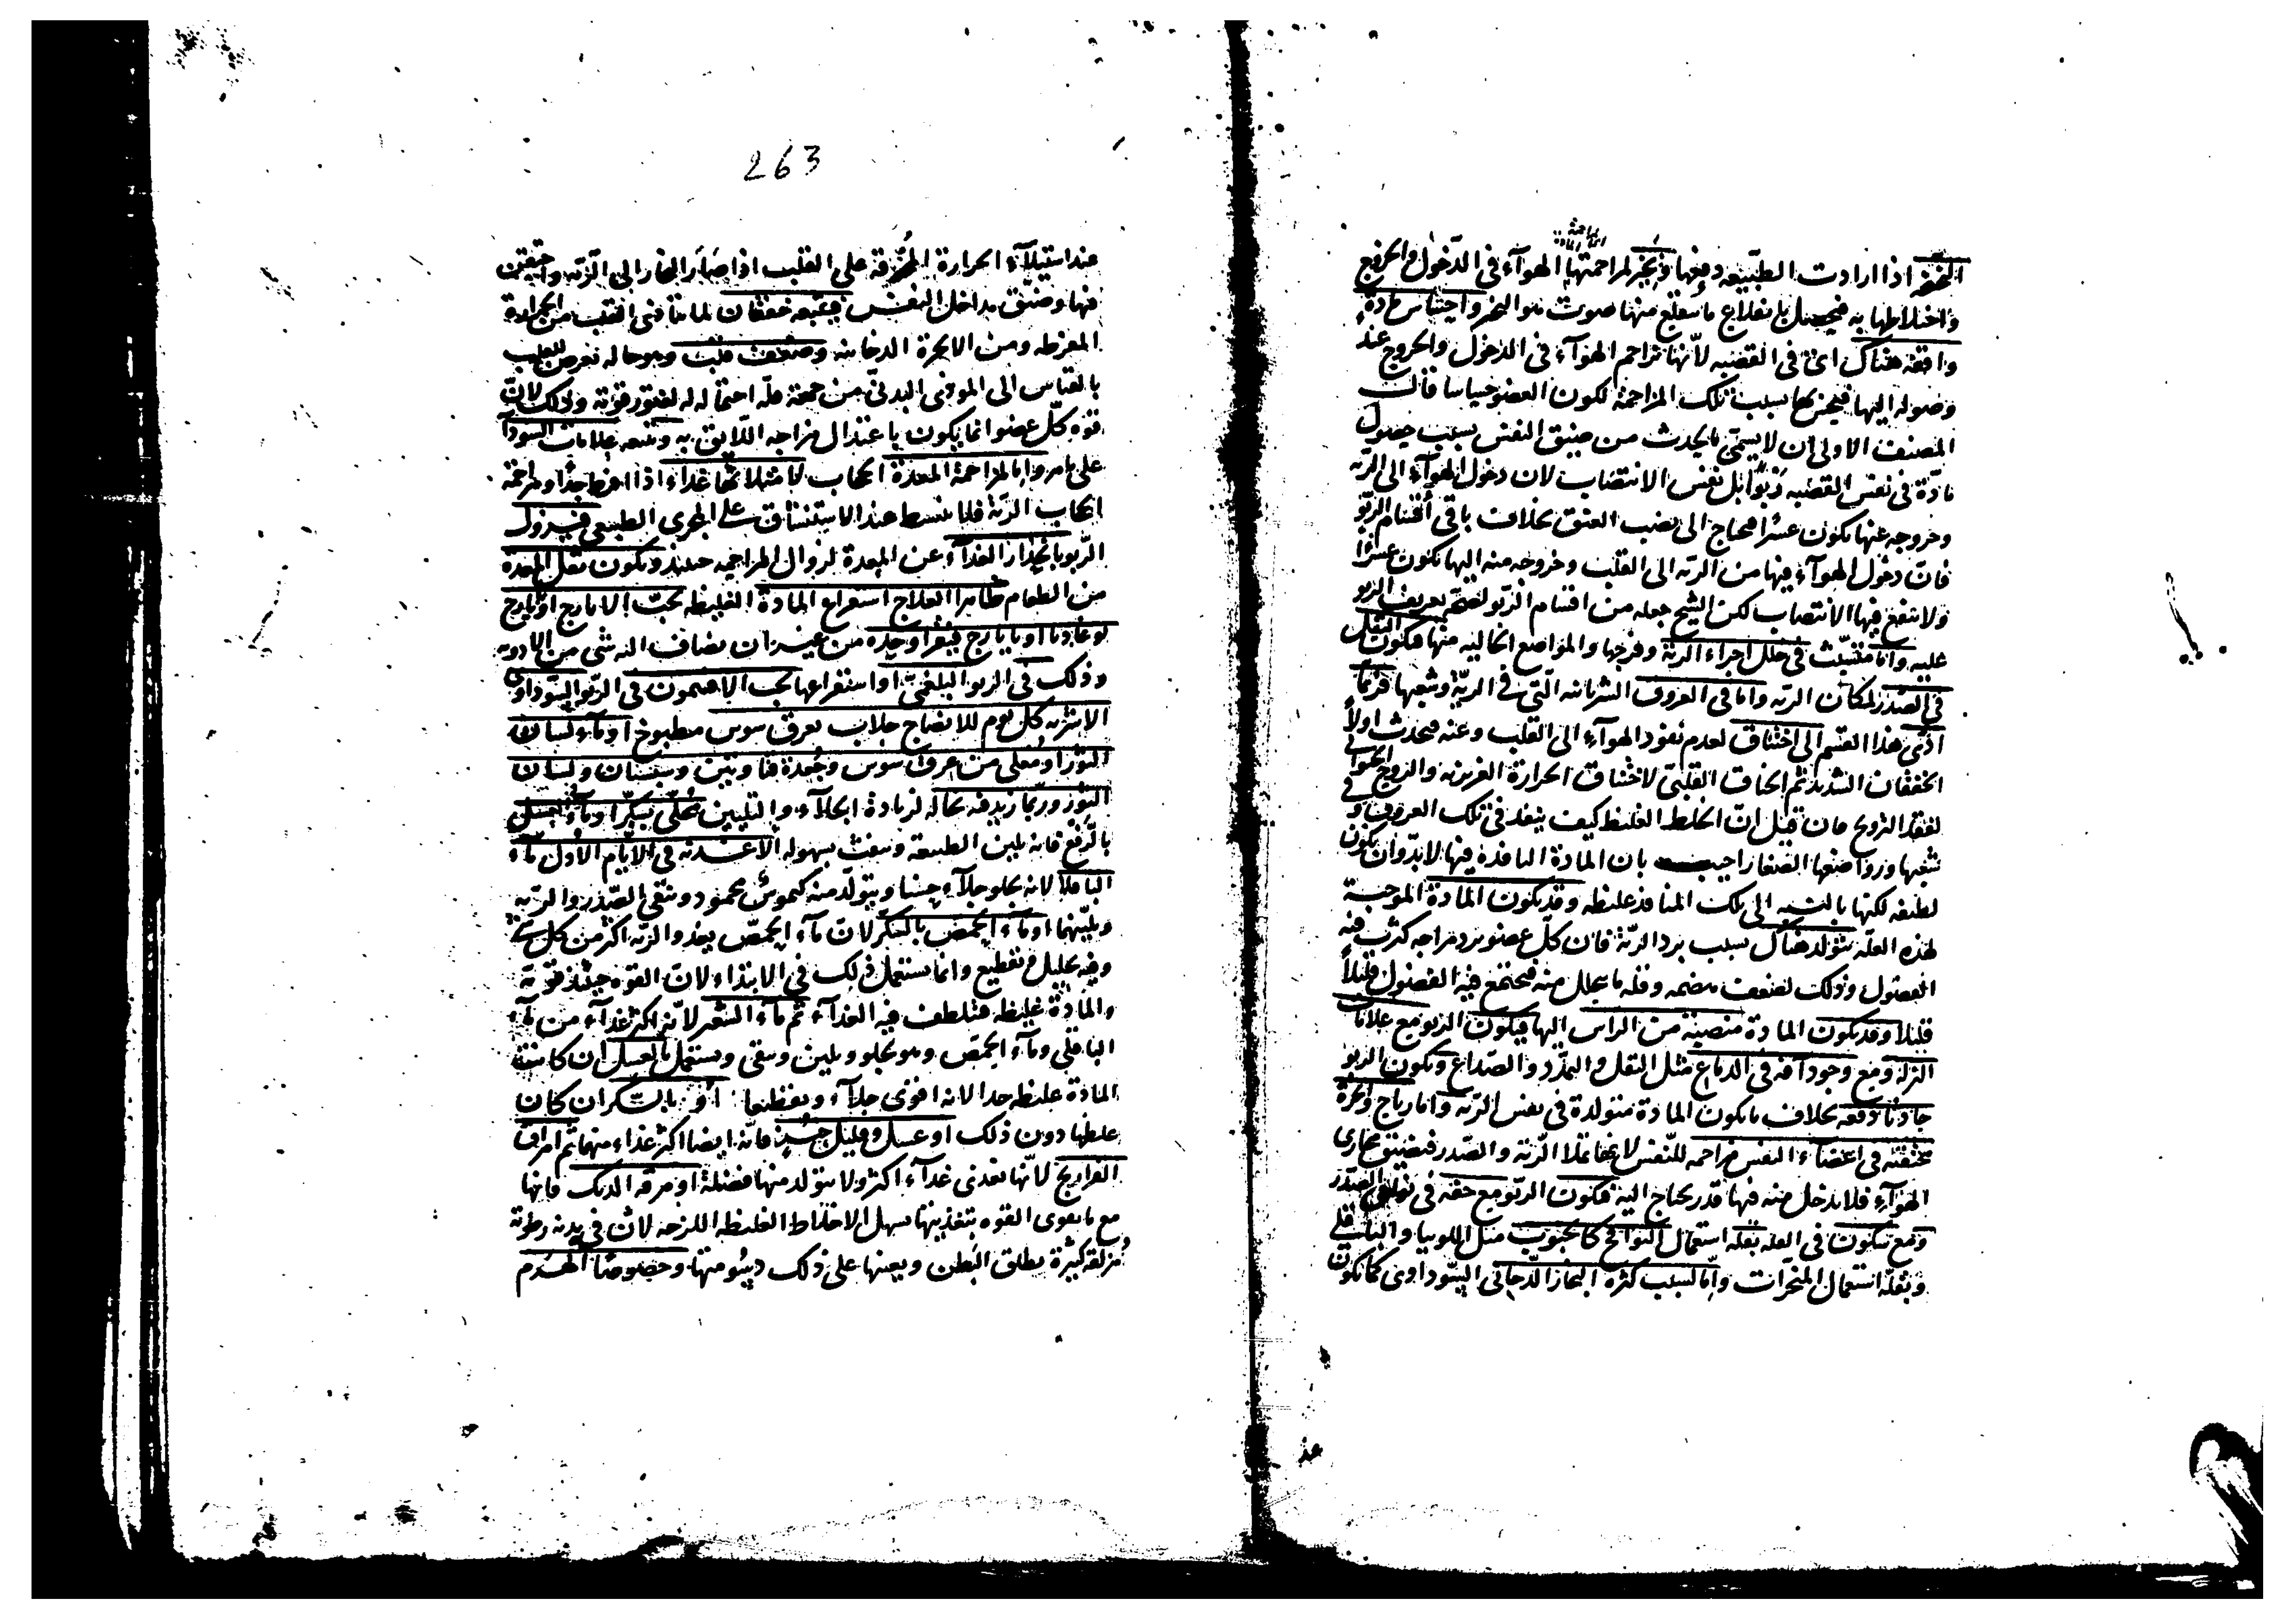 الخفه اذا ارادت الطبيعه دفعها ونخر لمزاحمتها الهوآء فى الدخول والخروج
واختلاطها به فيحصل بانقلاع ما ينقلع منها صوت هو النخر واحتباس مادة
واقفة هناك اى فى القصبه لانها تزاحم الهوآء فى الدخول والخروج عند
وصوله اليها فيحس بها بسبب تلك المزاحمة لكون العضو حساسا قال
المصنف الاولى ان لا يسمى ما يحدث من ضيق النفس بسبب حصول
مادة فى نفس القصبه ربوا بل نفس الانتصاب لان دخول الهوآء الى الرّيه
وخروجه عنها يكون عسرا محتاج الى نصب العنق بخلاف باقى اقسام الربو
فان دخول الهوآء فيها من الريه الى القلب وخروجه منه اليها يكون عسرا
ولا ينفع فيها الانتصاب لكن الشيخ جعله من اقسام الربو لصحة تعريف الربو
عليه واما متشبث فى خلل اجزاء الرية وفرجها والمواضع الخاليه منها فيكون الثقل
فى الصدر لمكان الريه واما فى العروق الشريانيه التى فى الرية وشعبها فربما
ادى هذا القسم الى اختناق لعدم نفود الهوآء الى القلب وعنه فيحدث اولا
الخفقان الشديد ثم الخناق القلبى لاختناق الحرارة الغريزيه والروح الحيوانى
لفقد التروح فان قيل ان الخلط الغليظ كيف ينفد فى تلك العروق وفى
شعبها ورواضعها الصغار اجيب بان المادة النافذة فيها لا بد وان يكون
لطيفه لكنها بالنسبه الى تلك المنافذ غليظه وقد يكون المادة الموجبة
لهذه العله يتولد هناك بسبب برد الرية فان كل عضو برد مزاجه كثرت فيه
الفضول وذلك لضعف هضمه وقله ما يتحلل منه فيجتمع فيه الفضول قليلا
قليلا وقد يكون المادة منصبة من الراس اليها فيكون الربو مع علامات
النزله ومع وجود آفه فى الدماغ مثل الثقل والتمدد والصداع ويكون الربو
حادثا دفعه بخلاف ما يكون المادة متولدة فى نفس الريه واما رياح وابخرة
محتقنه فى اعضاء النفس مزاحمه للنفس لا غاء تملا الريه والصدر فيضيق مجارى
الهوآء فلا يدخل منه فيها قدر يحتاج اليه فيكون الربو مع خفه فى نواحى الصدر
ومع سكون فى العله بقله استعمال النوافخ كالحبوب مثل اللوبيا والباقلى
وبقله استعمال المبخرات واما لسبب كثرة البخار الدخانى السوداوى كما يكون
263
عند استيلآء الحرارة المحرقة على القلب اذا صار البخار الى الريه واحتقن
فيها وضيق مداخل النفس فيتبعه خفقان لما يتاذى القلب من الحرارة
المفرطه ومن الابخرة الدخانيه وضعف قلب وهو حاله تعرض للقلب
بالقياس الى الموذى البدنى من جهة قلة احتماله له لفتور قوته وذلك لان
قوة كل عضو انما يكون باعتدال مزاجه اللايق به ويتبعه علامات السودا
على ما مر واما لمزاحمة المعدة الحجاب لامتلائها غذاء اذا افرط جدا ومزاحمة
الحجاب الرية فلا تنبسط عند الاستنشاق على المجرى الطبيعى فيزول
الربو بانحدار الغذآء عن المعدة لزوال المزاحمه حينئذ ويكون ثقل المعدة
من الطعام ظاهرا العلاج استفراغ المادة الغليظه بحب الايارج او ايارج
لوغاديا او بايارج فيقرا وحده من غير ان يضاف اليه شى من الادويه
وذلك فى الربو البلغمى او استفراغها بحب الافتيمون فى الربو السوداوى
الاشربه كل يوم للانضاج جلاب بعرق سوس مطبوخ او مآء لسان
الثور او مغلى من عرق سوس وجعدة قنا وتين وسبستان ولسان
الثور وربما زيد فيه نخاله لزيادة الجلآء والتليين محلى بسكر او مآء العسل
بالرفع فانه يلين الطبيعه وينفث بسهوله الاغذيه فى الايام الاول مآء
الباقلا لانه يجلو جلآء حسنا ويتولد منه كيموس محمود وينقى الصدر والريه
ويلينهما او مآء الحمص بالسكر لان مآء الحمص يغذو الريه اكثر من كل شى
وفيه تحليل وتقطيع وانما يستعمل ذلك فى الابتداء لان القوه حينئذ قوية
والمادة غليظه فيلطف فيه الغذآء ثم مآء الشعير لانه اكثر غذآء من مآء
الباقلى ومآء الحمص وهو يجلو ويلين وينقى ويستعمل بالعسل ان كانت
المادة غليظه جدا لانه اقوى جلآء وتقطيعا او بالسكر ان كان
غلظها دون ذلك او عسل وقليل خبز فانه ايضا اكثر غذاء منها ثم امراق
الفراريج لانها تغذى غذآء اكثر ولا يتولد منها فضله او مرقه الديك فانها
مع ما يقوى القوه بتغذيتها يسهل الاخلاط الغليظه اللزجه لان فى بدنه رطوبة
مزلقة كثيرة يطلق البطن ويعينها على ذلك دسومتها وخصوصا الهرم